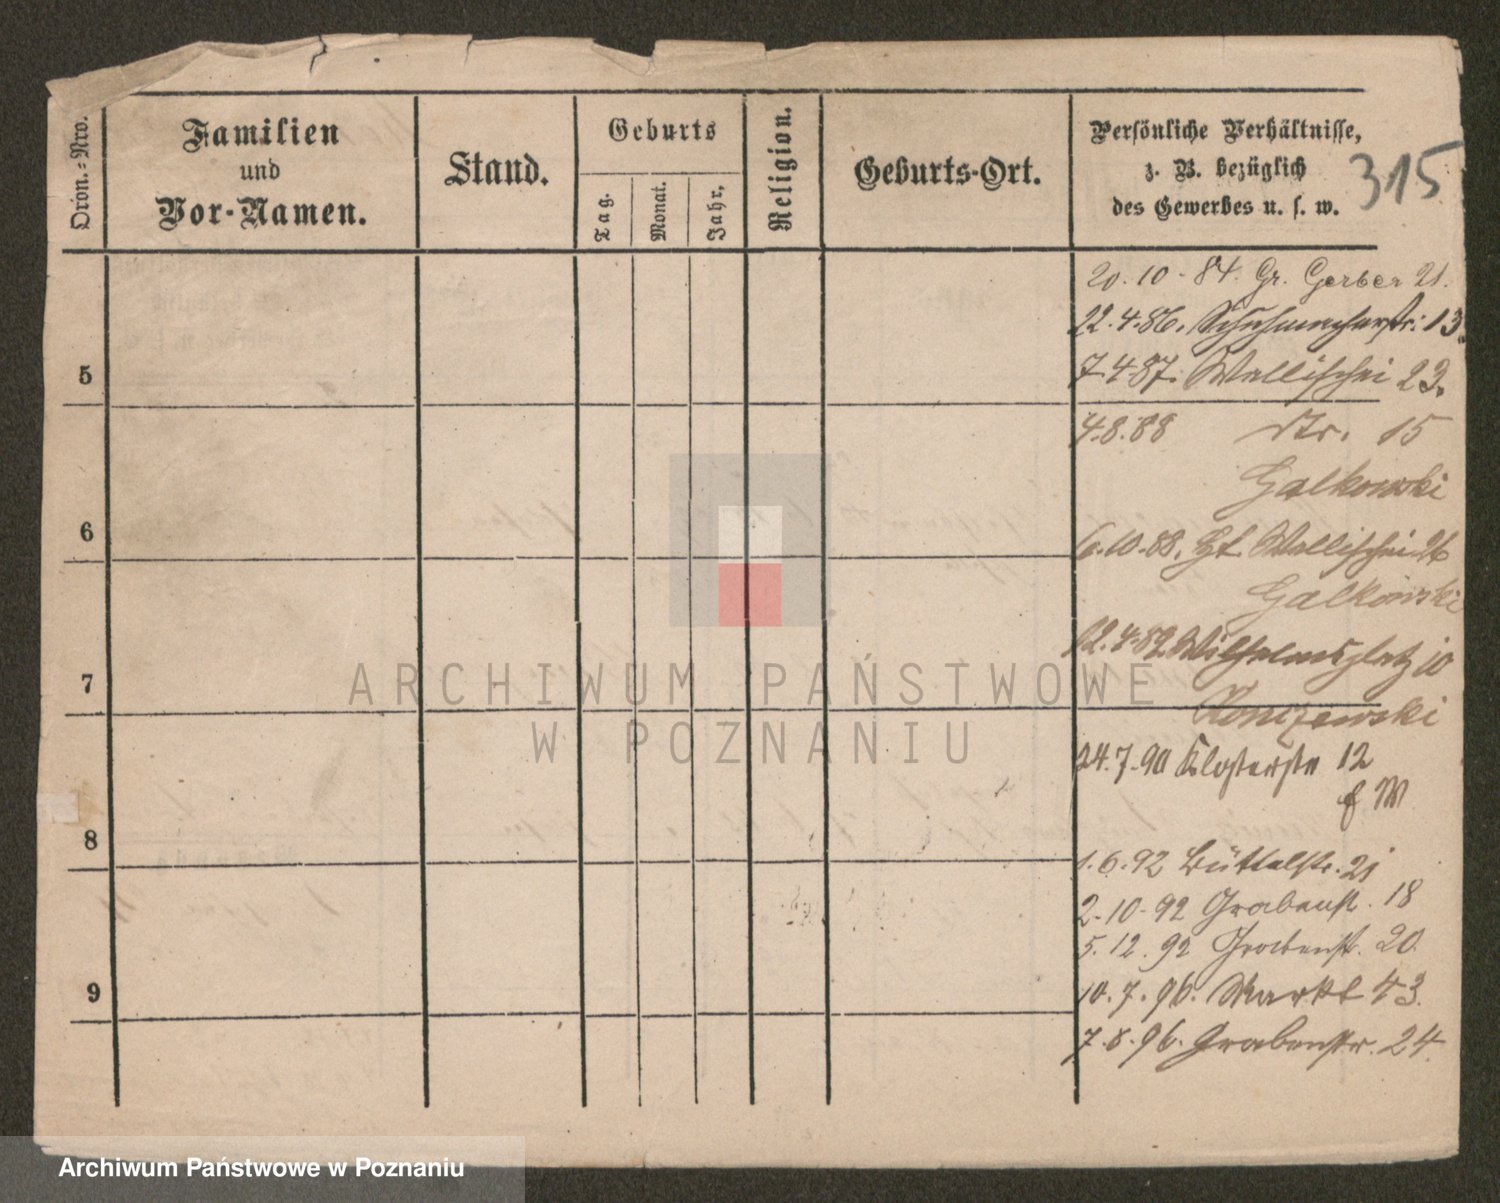 Ordn.-Nro.
Familien
und
Vor-Namen.
Stand.
Geburts
Tag.
Monat.
Jahr,
Religion.
Geburts-Ort.
Persönliche Verhältnisse,
z. B. bezüglich
des Gewerbes u. s. w.
315
20.10-84. Gr. Gerber 21.
22.4.86. Schuhmacherstr. 13.
5
7.4.87. Wallischei 23.
4.8.88 Str. 15
Galkowski
6
6.10.88. Wallischei 26
Galkowski
12.4.89. Wilhelmsplatz 10
7
24.7.90 Klosterstr 12
8
1.6.92 Büttelstr. 21
2-10-92 Grabenst. 18
5.12.92 Grabenst. 20.
9
10.7.96. Markt 43.
7.8.96. Grabenstr. 24.
ARCHIWUM PAŃSTWOWE
W POZNANIU
Archiwum Państwowe w Poznaniu